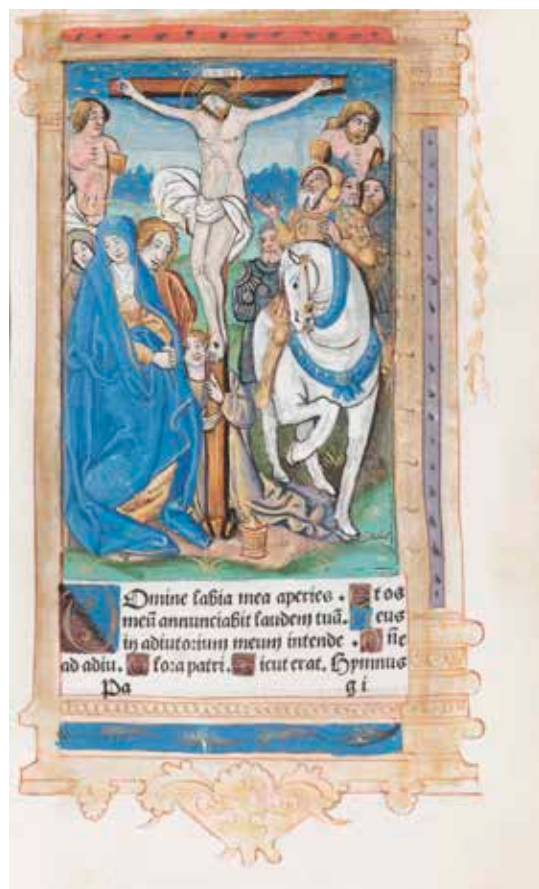 DOmine labia mea aperies . Et os
meū annunciabit laudem tuā. Deus
in adiutorium meum intende . Dñe
ad adiu. Gloria patri. Sicut erat. Hymnus
Pa g i